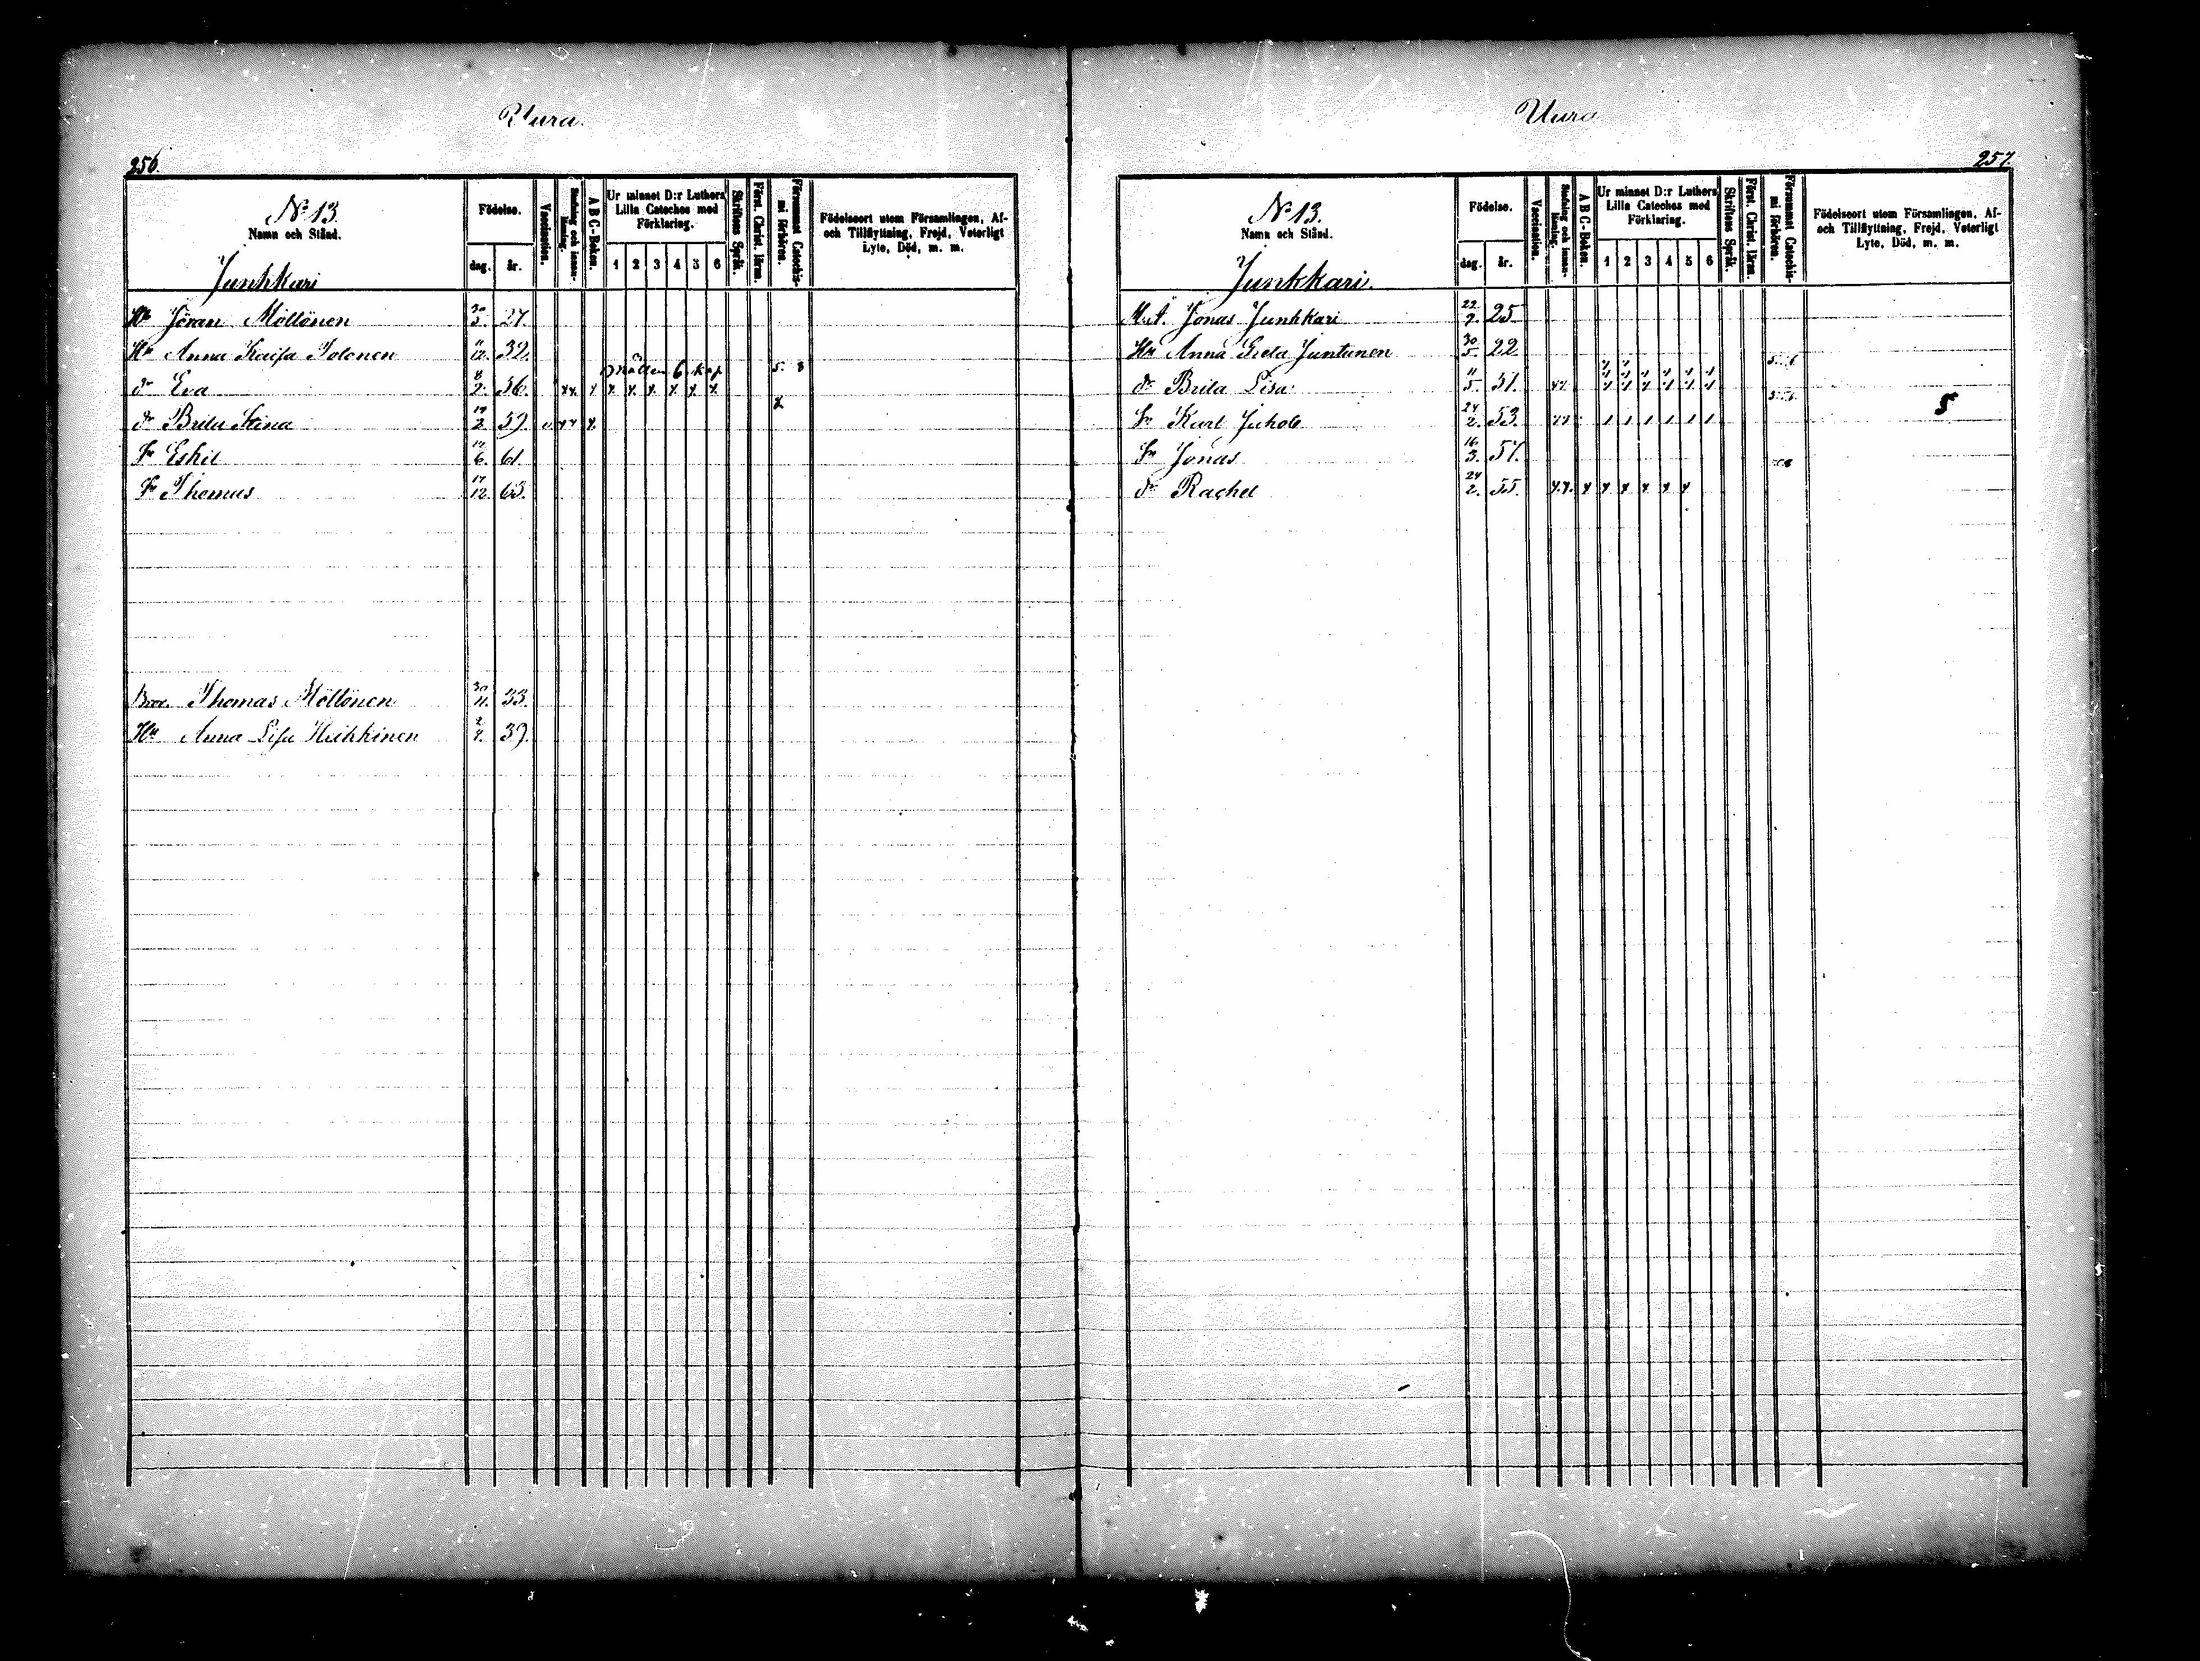 Uura.
256.
No 13.
Namn och Stånd.
Junkkari
Födelse.
dag. år.
Vaccination.
ABC-Boken.
Ur minnet D:r Luthers Lilla Cateches med Förklaring.
1 2 3 4 5 6
Skriftens Språk.
Först. Christ. lären.
Försummat Catechismi förhören.
Födelseort utom Församlingen, Af- och Tillflyttning, Frejd, Veterligt Lyte, Död, m. m.
Jöran Möttönen 30/5. 27.
Hu Anna Kaisa Tolonen 12. 32.
6 kap
dr Eva 8/2. 56.
dr Brita Stina 2. 59.
Sn Eskil 6. 61.
Sn Thomas 12. 63.
Bror. Thomas Möttönen 30/11. 33.
Hu Anna Lisa Heikkinen 2/7. 39.
Uura
257.
No 13.
Namn och Stånd.
Junkkari.
Födelse.
dag. år.
Vaccination.
ABC-Boken.
Ur minnet D:r Luthers Lilla Cateches med Förklaring.
1 2 3 4 5 6
Skriftens Språk.
Först. Christ. lären.
Försummat Catechismi förhören.
Födelseort utom Församlingen, Af- och Tillflyttning, Frejd, Veterligt Lyte, Död, m. m.
Jonas Junkkari 22/7. 25
Hu Anna Greta Juntunen 30/5. 22
dr Brita Lisa 11/5. 51.
5
Sn Karl Jakob 24/2. 53.
Sn Jonas 16/3. 57.
dr Rachel 24/2. 55.